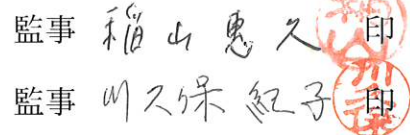 監事 稲山惠久 印
監事 川久保紀子 印